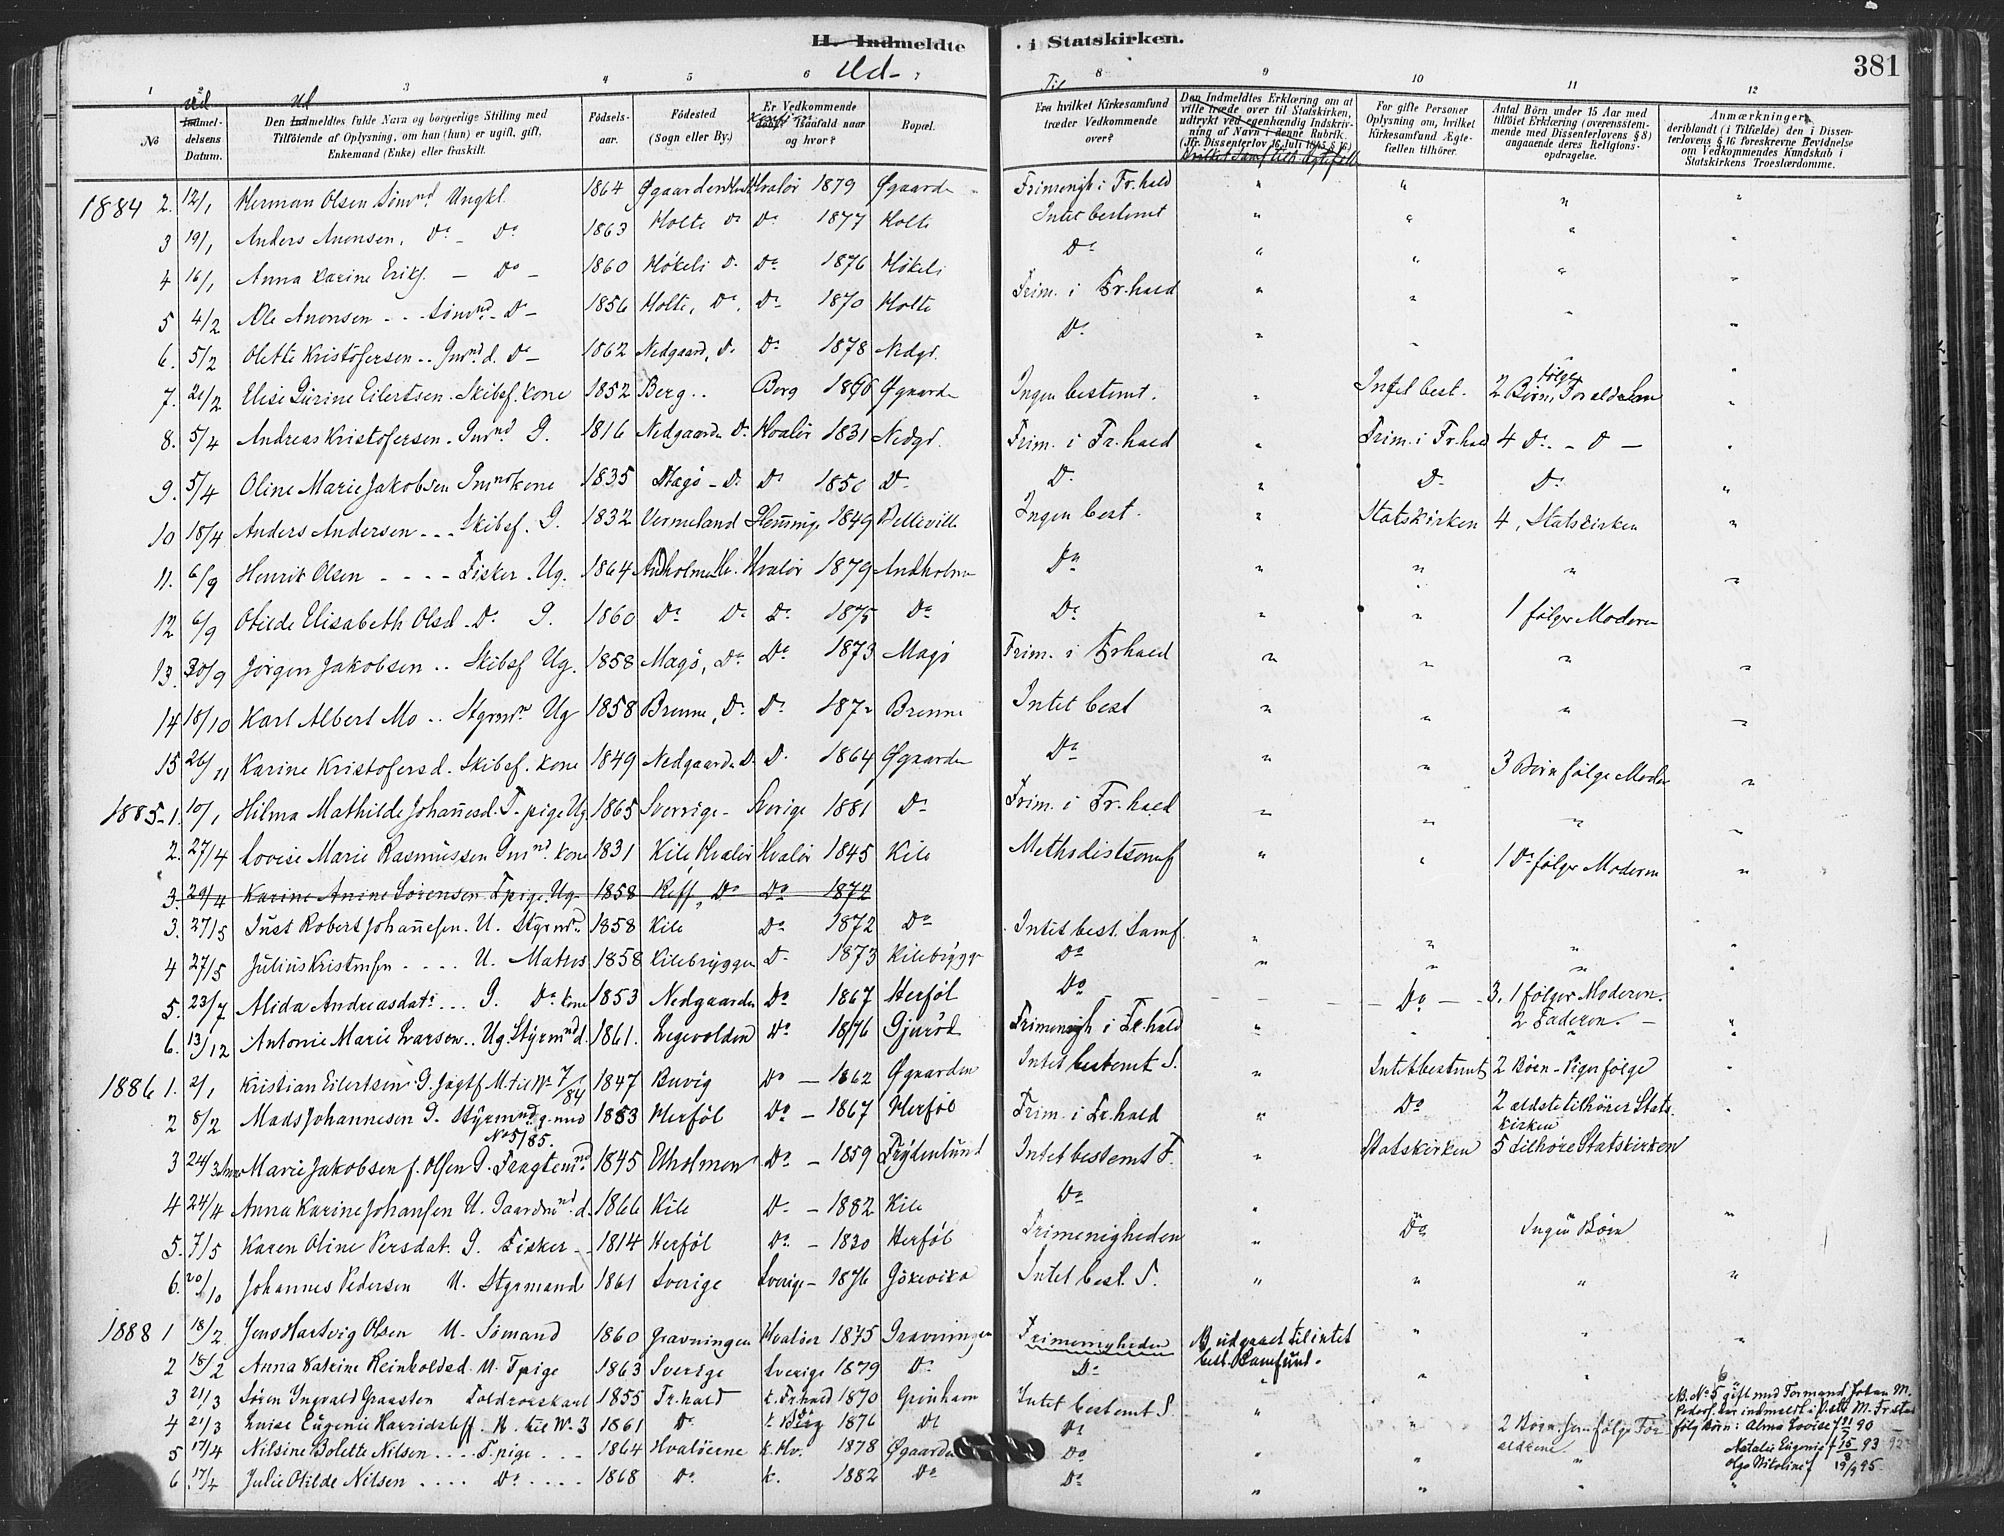 H. Indmeldte i Statskirken.
Ud-
381
1 2 3 4 5 6 7 8 9 10 11 12
No
Ud
Indmel-
delsens
Datum.
Ud
Den Indmeldtes fulde Navn og borgerlige Stilling med
Tilføiende af Oplysning, om han (hun) er ugift, gift,
Enkemand (Enke) eller fraskilt.
Fødsels-
aar.
Fødested
(Sogn eller By.)
Er Vedkommende
døbt? Isaafald naar
og hvor?
Bopæl.
Til
Fra hvilket Kirkesamfund
træder Vedkommende
over?
Den Indmeldtes Erklæring om at
ville træde over til Statskirken,
udtrykt ved egenhændig Indskriv-
ning af Navn i denne Rubrik.
(Jfr. Dissenterlov 16 Juli 1845 § 16.)
For gifte Personer
Oplysning om, hvilket
Kirkesamfund Ægte-
fællen tilhører.
Antal Børn under 15 Aar med
tilføiet Erklæring (overensstem-
mende med Dissenterlovens § 8)
angaaende deres Religions-
opdragelse.
Anmærkninger,
deriblandt (i Tilfælde) den i Dissen-
terlovens § 16 foreskrevne Bevidnelse
om Vedkommendes Kundskab i
Statskirkens Troeslærdomme.
1884 2. 12/1 Herman Olsen Sømnd Ungkl. 1864 Øgaarden Hvalør 1879 Øgaarde Frimenigh i Fr.hald " " " "
3 19/1 Anders Anonsen, Do - Do 1863 Holte Do Do 1877 Holte Intet bestemt " " " "
4 16/1 Anna Karine Eriks. - Do - 1860 Høkeli D. Do 1876 Høkeli Do " " " "
5 4/2 Ole Anonsen - - Sømnd - D - 1856 Holte, Do, Do 1870 Holte Frim. i Fr.hald " " " "
6. 5/2 Olette Kristofersen .. Gmnd. d. Do - 1862 Nedgaard, D. Do 1878 Nedgd. Do " " " "
7. 21/2 Elise Gurine Eilertsen. Skibsf. kone 1852 Berg .. Borg 1866 Øgaarde Ingen bestemt. " Intet best. 2 Børn, følge Forældrene "
8. 5/4 Andreas Kristofersen. Gmnd G. 1816 Nedgaarde Do Hvalør 1831 Nedgd. Frim. i Fr.hald " Frim. i Fr.hald 4 Do - o - "
9. 5/4 Oline Marie Jakobsen Gmnds kone 1835 Magø - D. Do 1850 Do Do " Do Do "
10 18/4 Anders Andersen - - - Skibsf. G. 1832 Vermeland 1849 Belleville Ingen best. " Statskirken 4, Statskirken "
11. 6/9 Henrik Olsen - - - - Fisker. Ug. 1864 Andholmen Hv. Hvalør 1879 Andholmen Do " " " "
12 6/9 Otilde Elisabeth Olsd. Do G. 1860 Do Do Do 1875 Do Do " " 1 følger Moderen
13. 30/9 Jørgen Jakobsen .. Skibsf Ug. 1858 Magø, Do Do 1873 Magø Frim. i Frhald " " " "
14 18/10 Karl Albert Mo .. Styrmn Ug 1858 Brenne, D. Do 1872 Brenne Intet best " " " "
15 26/11 Karine Kristofersd. Skibsf. kone 1849 Nedgaarde D. D. 1864 Øgaarden Do " " 3 Børn følge Moder "
1885- 1. 10/1 Hilma Mathilde Johañesd. T-pige Ug 1865 Sverrige - Sverige 1881 Do Frim. i Fr.hald " " " "
2. 27/4 Lovise Marie Rasmussen Gmnd. kone 1831 Kile Hvalør Hvalør 1845 Kile Methodistsamf " " 1 Do følger Moderen "
3. 29/4 Karine Anine Sørensen Tpige. Ug 1858 Reff, Do Do 1872
3. 27/5 Just Robert Johañesen. U. Styrmd. 1858 Kile Do 1872 Do Intet best. Samf. " " " "
4 27/5 Julius Kristensen .... U. Matros 1858 Kilebryggen D. 1873 Kilebrygge Do " " " "
5. 23/7 Alida Andreasdatr ... G. Do kone 1853 Nedgaarden Do 1867 Herføl Do - - - - Do - - 3. 1 følger Moderen.
2 Faderen. -
6. 13/12 Antonie Marie Larsen.. Ug. Styrmnd d. 1861. Legevolden Do 1876 Gjurød Frimenigh i Fr.hald " " " "
1886 1. 2/1 Kristian Eilertsen G. Jagtf. M. til No 7/84 1847 Buvig Do - 1862 Øgaarden Intet bestemt S. " Intet bestemt 2 Børn - Piger følge "
2 8/2 Mads Johannesen G. Styrmnd g. med 1853 Herføl Do - 1867 Herføl Frim. i Fr.hald " Do 2 ældste tilhører Stats-
No 5/85. kirken
3 24/3 Marie Jakobsen f. Olsen G. Fragtemnd 1845 Etholmen Do - 1859 Frydenlund Intet bestemt S. " Statskirken 5 tilhøre Statskirken
4 24/4 Anna Karine Johansen U. Gaardmnd. d. 1866 Kile D. - 1882 Kile Do " " " "
5. 7/5 Karen Oline Persdat. G. Fisker - - 1814 Herføl Do - 1830 Herføl Frimenigheden " Do Ingen Børn
6. 20/10 Johannes Pedersen U. Styrmand 1861 Sverige Sverige - 1876 Gökevika Intet best. S. " " " "
1888 1 18/2 Jens Hartvig Olsen U. Sømand 1860 Gravningen Hvaløer 1875 Gravningen Frimenigheden NB udgaaet til intet " " "
best. Samfund.
2 18/2 Anna Katrine Reinholdsd. U. Tpige 1863 Sverige Sverige 1879 D. Do " " "
3 21/3 Søren Ingvald Graasten Toldroerskarl 1855 Fr.hald k. Frhald 1870 Grönham Intet bestemt S. " " "
4 21/3 Luise Eugenie M. til No 3 1861 Do k. Berg 1876 Do Do " " 2 Børn som følge For-
ældrene
5 17/4 Nilsine Bolette Nilsen .... T.pige ... 1864 Hvaløerne k. Hv. 1878 Øgaarden Do " " "
6 17/4 Julie Otilde Nilsen .... Do .... 1868 Do k. 1882 Do Do " " "
6
NB. No 5 gift med Formand Johan M.
Pederf. har indmeldt i Meth. M. Fr.stad
følg børn: Alma Lovise f 90
Natalie Eugenie f 15/8 93
Olga Nikoline f 19/9 95.